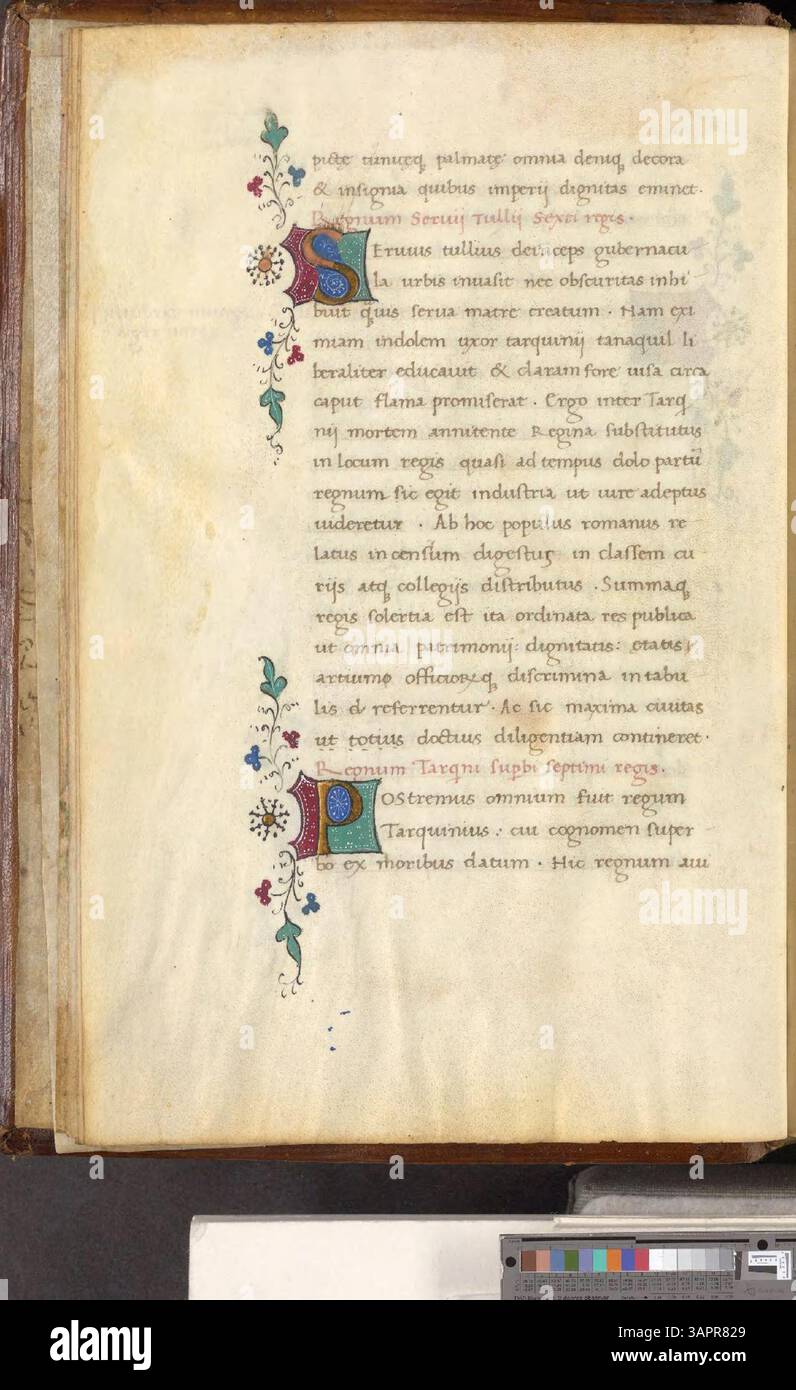 pictę tunicęq palmatę omnia deniq decora
& insignia quibus imperij dignitas eminet.
Regnum Seruij Tullij Sexti regis.
SEruius tullius deinceps gubernacu
la urbis inuasit nec obscuritas inhi
buit quis serua matre creatum . Nam exi
miam indolem uxor tarquinij tanaquil li
beraliter educauit & claram fore uisa circa
caput flama promiserat . Ergo inter Tarq
nij mortem annitente Regina substitutus
in locum regis quasi ad tempus dolo partū
regnum sic egit industria ut iure adeptus
uideretur . Ab hoc populus romanus re
latus in censum digestus in classem cu
rijs atq collegijs distributus . Summaq
regis solertia est ita ordinata res publica
ut omnia patrimonij: dignitatis: ętatis:
artiumq officiorꝝq discrimina in tabu
lis d referrentur . Ac sic maxima ciuitas
ut totius doctius diligentiam contineret.
Regnum Tarqni supbi septimi regis.
POstremus omnium fuit regum
Tarquinius : cui cognomen super
bo ex moribus datum . Hic regnum aui
alamy
Image ID: 3APR829
www.alamy.com